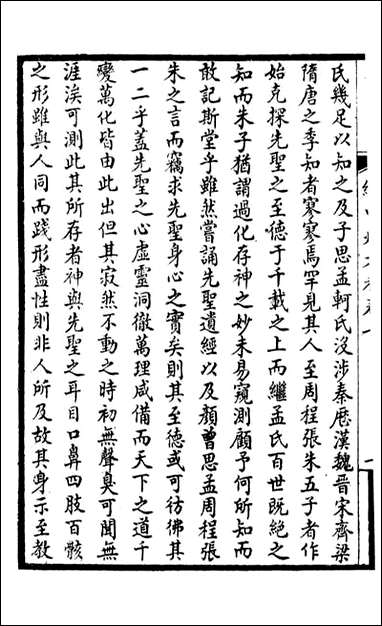 氏幾足以知之及子思孟軻氏沒涉秦歷漢魏晉宋齊梁
隋唐之季知者寥寥焉罕見其人至周程張朱五子者作
始克探先聖之至德于千載之上而繼孟氏百世既絶之
知而朱子猶謂過化存神之妙未易窺測顧予何所知而
敢記斯堂乎雖然嘗誦先聖遺經以及顏曾思孟周程張
朱之言而竊求先聖身心之實矣則其至德或可彷彿其
一二乎蓋先聖之心虛靈洞徹萬理咸備而天下之道千
變萬化皆由此出但其寂然不動之時初無聲臭可聞無
涯涘可測此其所存者神與先聖之耳目口鼻四肢百骸
之形雖與人同而踐形盡性則非人所及故其身示至教